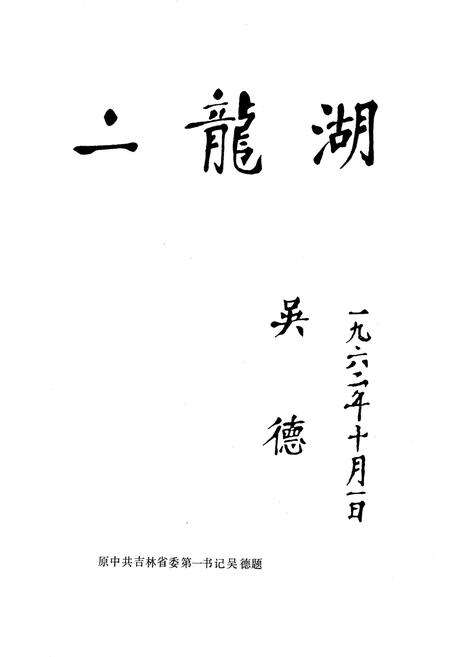 二龍湖
吳德
一九六二年十月一日
原中共吉林省委第一书记吴德题